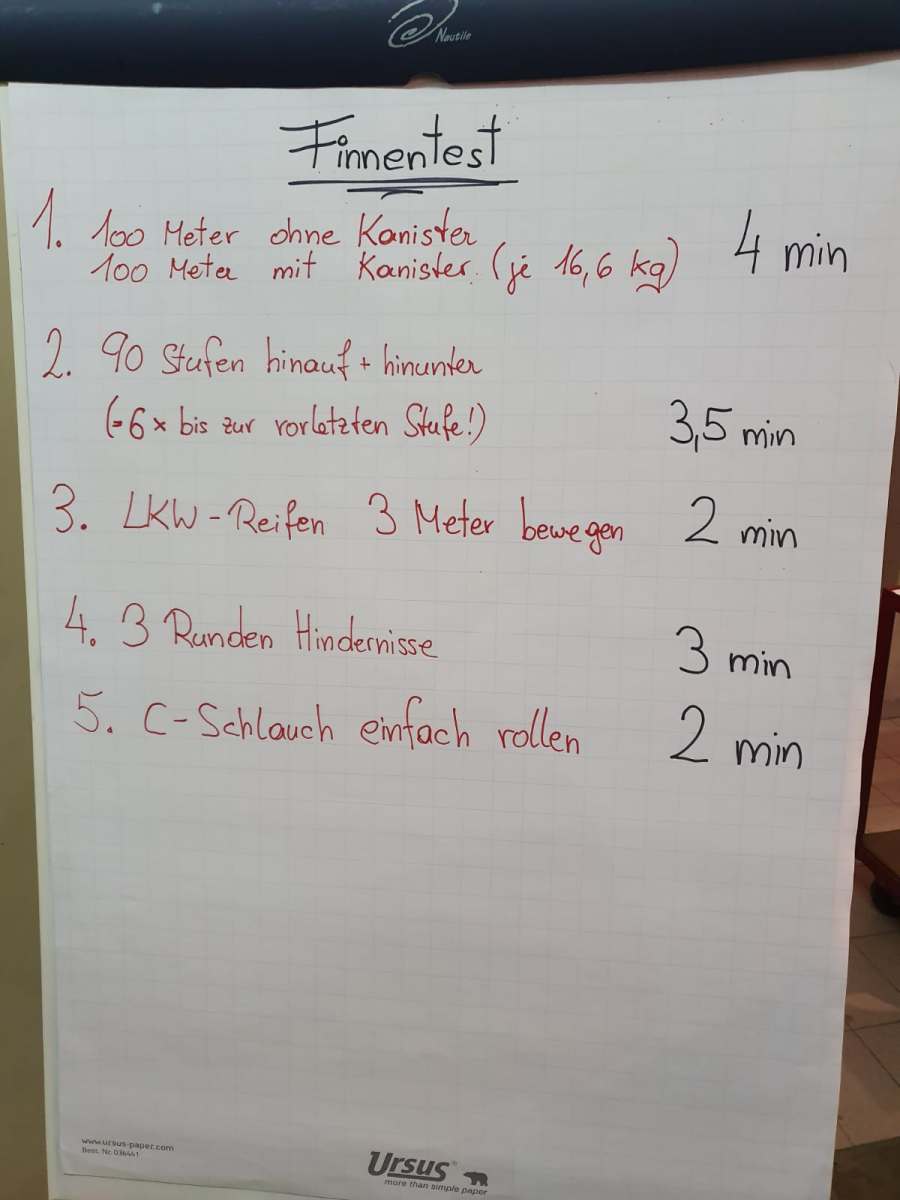 Nautile
Finnentest
1. 100 Meter ohne Kanister
100 Meter mit Kanister. (je 16,6 kg) 4 min
2. 90 Stufen hinauf + hinunter
(=6 x bis zur vorletzten Stufe!) 3,5 min
3. LKW-Reifen 3 Meter bewegen 2 min
4. 3 Runden Hindernisse 3 min
5. C-Schlauch einfach rollen 2 min
www.ursus-paper.com
Best. Nr. 036441
Ursus®
more than simple paper